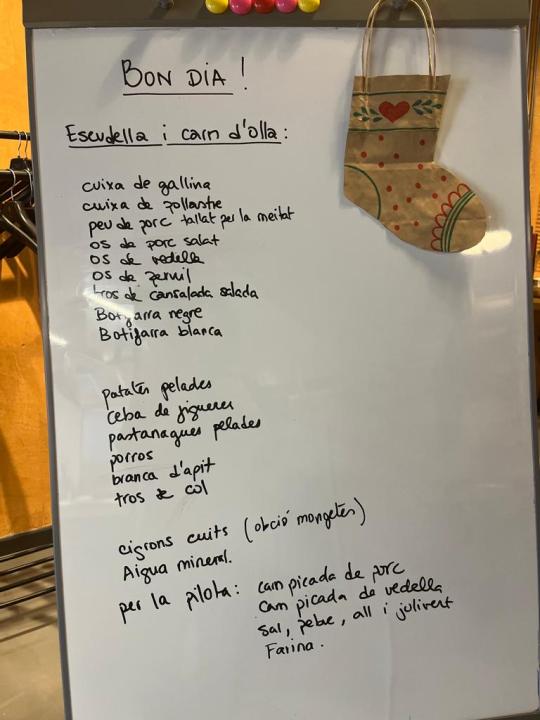 BON DIA!
Escudella i carn d'olla:
cuixa de gallina
cuixa de pollastre
peu de porc tallat per la meitat
os de porc salat
os de vedella
os de pernil
tros de cansalada salada
Botifarra negre
Botifarra blanca
patates pelades
ceba de figueres
pastanagues pelades
porros
branca d'apit
tros de col
cigrons cuits (obció mongetes)
Aigua mineral.
per la pilota: carn picada de porc
carn picada de vedella
sal, pebre, all i julivert
Farina.